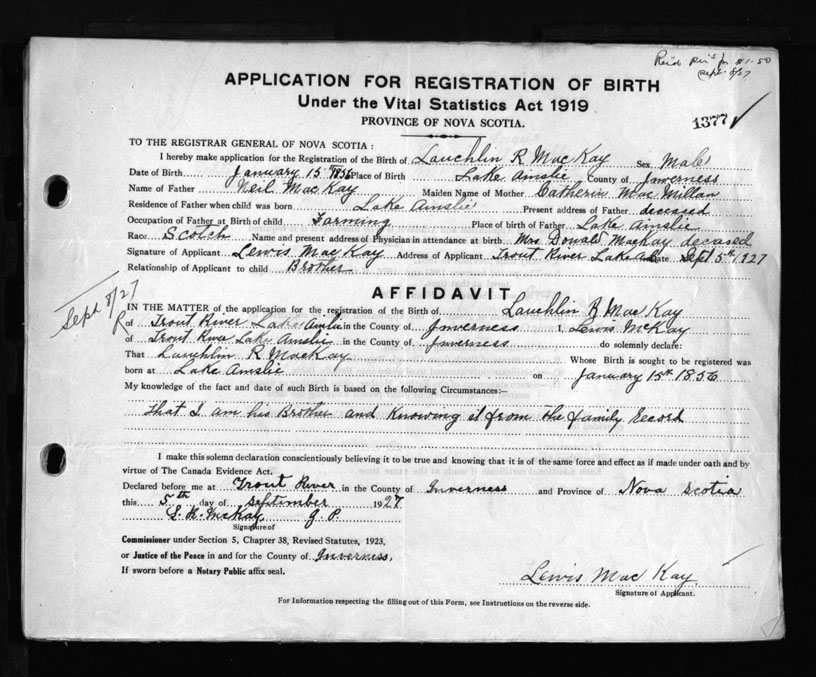 Rec'd $1.50
Sept 8/27
APPLICATION FOR REGISTRATION OF BIRTH
Under the Vital Statistics Act 1919
PROVINCE OF NOVA SCOTIA.
1377 ✓
TO THE REGISTRAR GENERAL OF NOVA SCOTIA :
I hereby make application for the Registration of the Birth of Lauchlin R MacKay Sex Male
Date of Birth January 15th 1856 Place of Birth Lake Ainslie County of Inverness
Name of Father Neil MacKay Maiden Name of Mother Catherin MacMillan
Residence of Father when child was born Lake Ainslie Present address of Father deceased
Occupation of Father at Birth of child Farming Place of birth of Father Lake Ainslie
Race Scotch Name and present address of Physician in attendance at birth Mrs Donald MacKay deceased
Signature of Applicant Lewis MacKay Address of Applicant Trout River Lake Date Sept 5th 1927
Relationship of Applicant to child Brother
AFFIDAVIT
Sept 8/27
R
IN THE MATTER of the application for the registration of the Birth of Lauchlin R MacKay
of Trout River Lake Ainslie in the County of Inverness I, Lewis McKay
of Trout River Lake Ainslie in the County of Inverness do solemnly declare:
That Lauchlin R MacKay Whose Birth is sought to be registered was
born at Lake Ainslie on January 15th 1856
My knowledge of the fact and date of such Birth is based on the following Circumstances:—
That I am his Brother and Knowing it from the family Record
I make this solemn declaration conscientiously believing it to be true and knowing that it is of the same force and effect as if made under oath and by
virtue of The Canada Evidence Act.
Declared before me at Trout River in the County of Inverness and Province of Nova Scotia
this 5th day of September 1927
McKay J. P.
Signature of
Commissioner under Section 5, Chapter 38, Revised Statutes, 1923,
or Justice of the Peace in and for the County of Inverness.
If sworn before a Notary Public affix seal.
Lewis MacKay
Signature of Applicant.
For Information respecting the filling out of this Form, see Instructions on the reverse side.